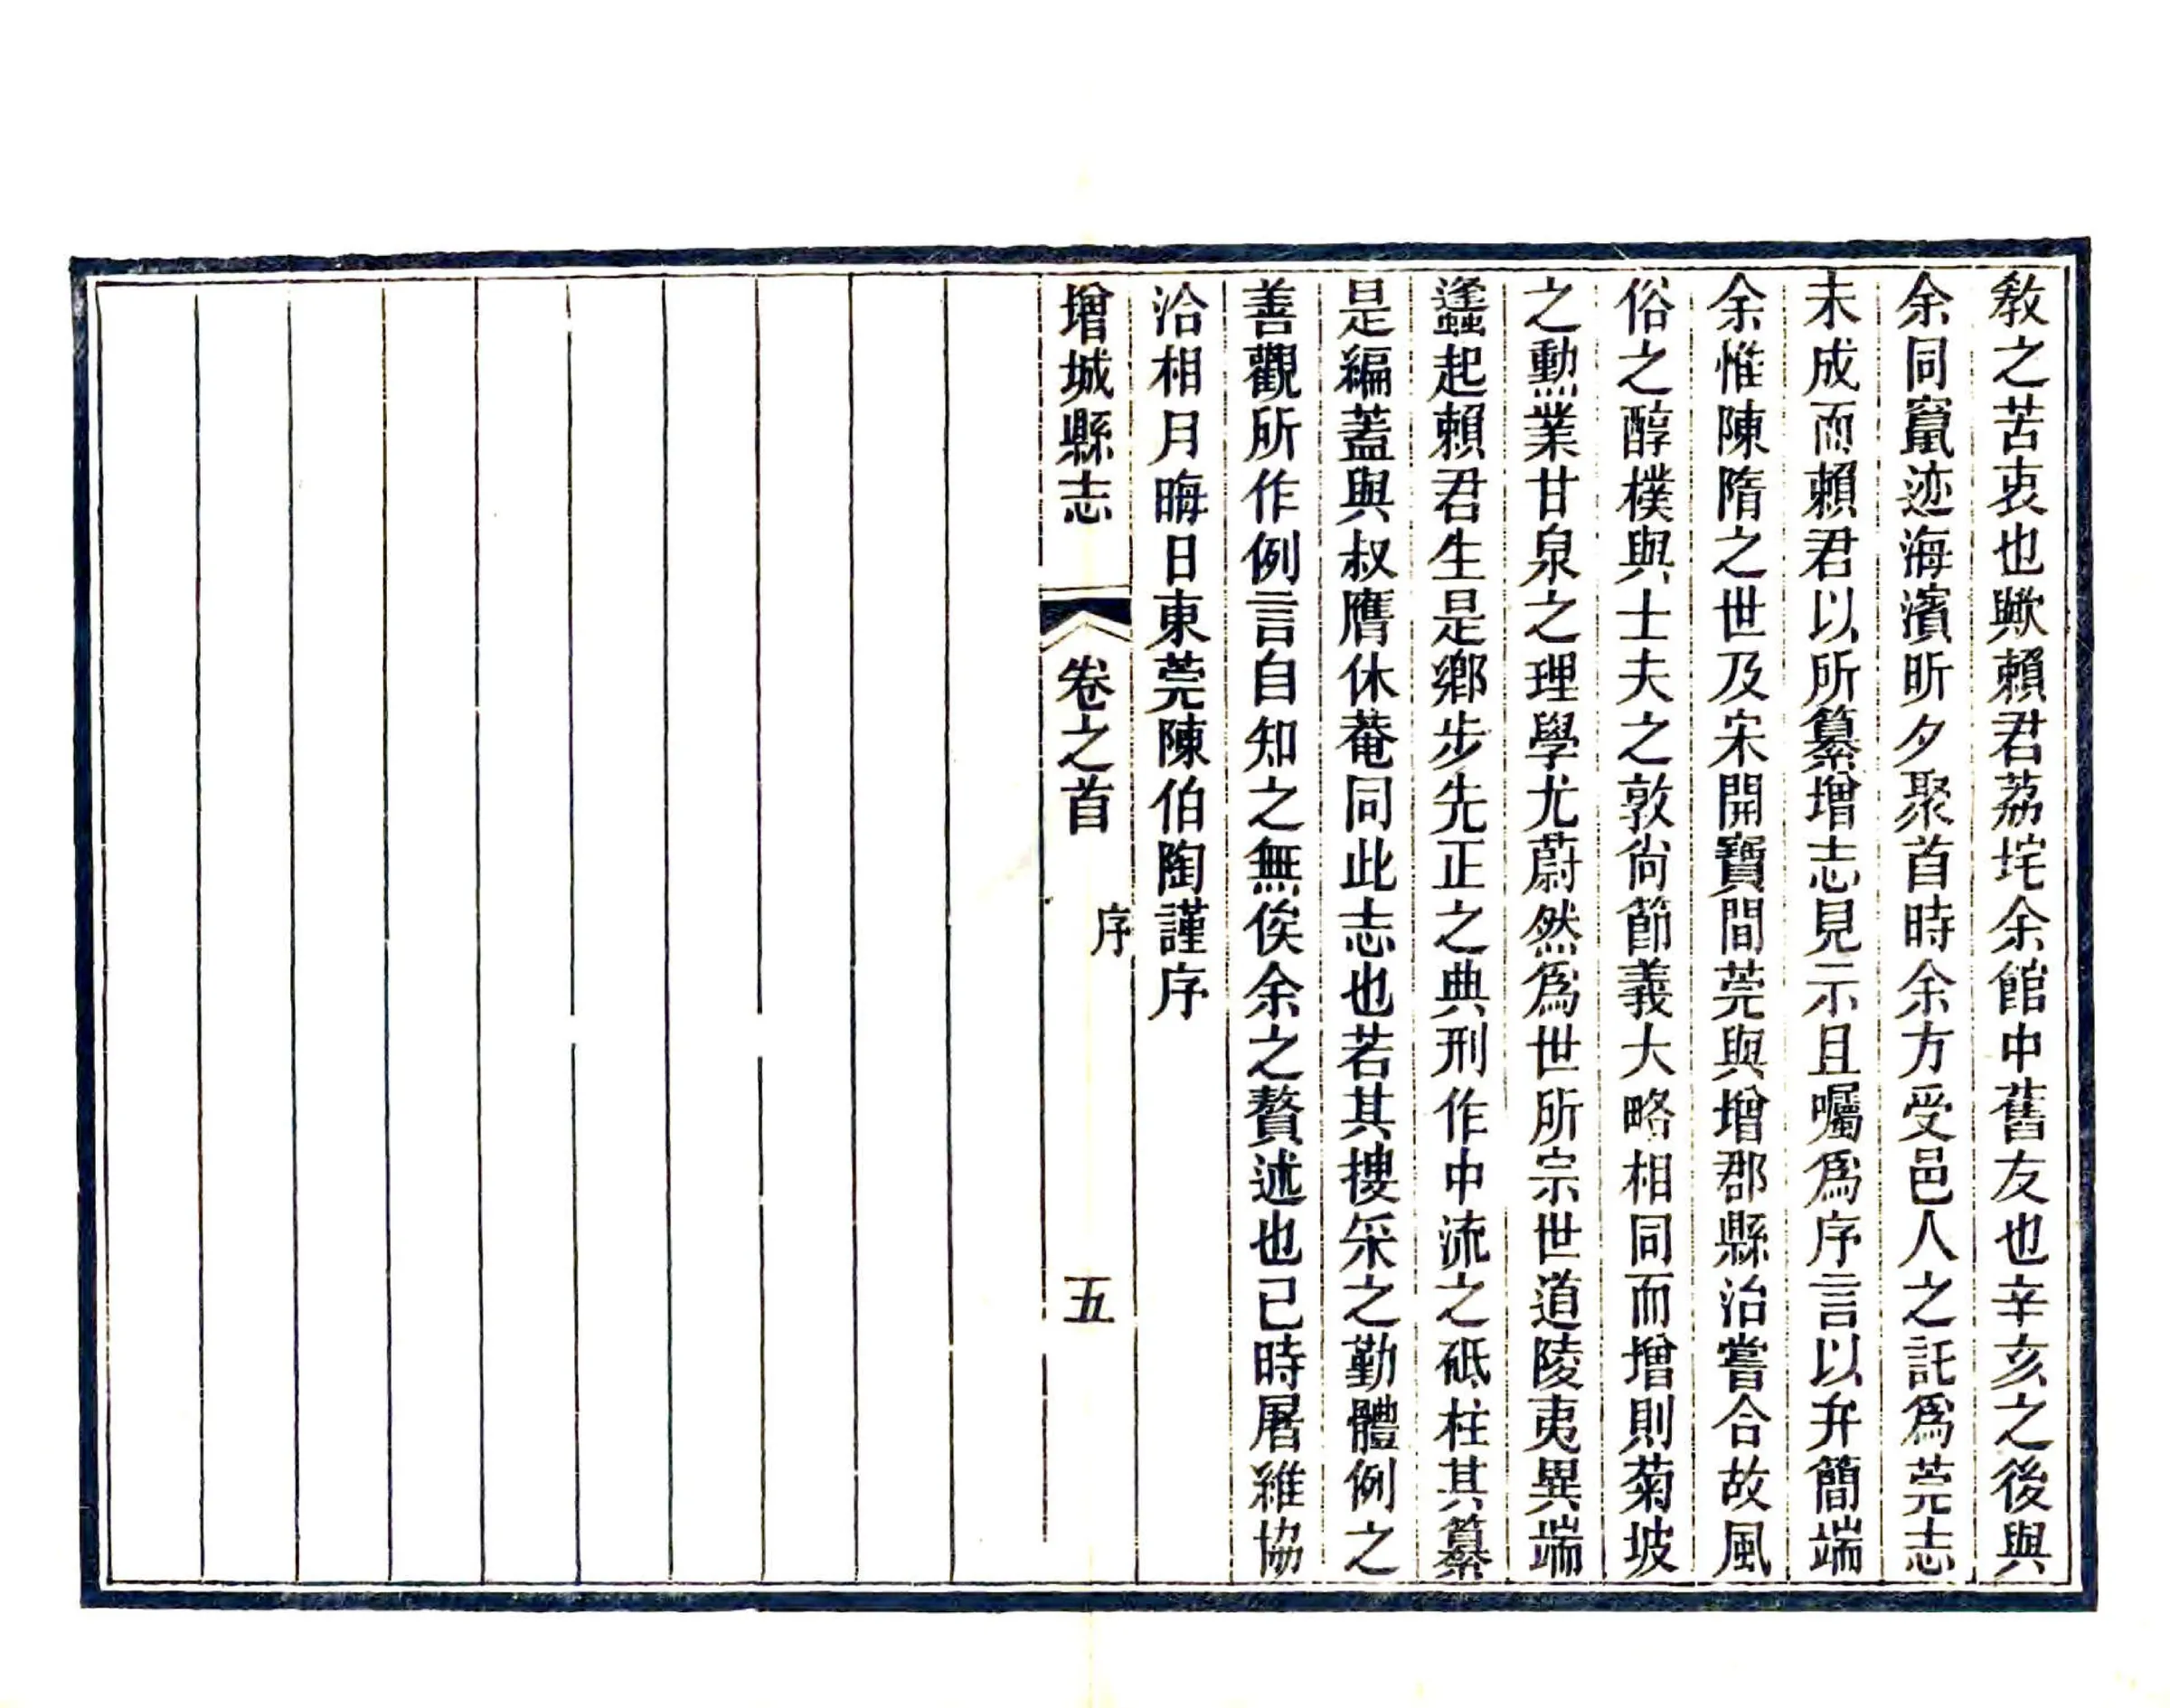 教之苦衷也歟賴君荔垞余館中舊友也辛亥之後與
余同竄迹海濱昕夕聚首時余方受邑人之託爲莞志
未成而賴君以所纂增志見示且囑爲序言以弁簡端
余惟陳隋之世及宋開寶間莞與增郡縣治嘗合故風
俗之醇樸與士夫之敦尙節義大略相同而增則菊坡
之勳業甘泉之理學尤蔚然爲世所宗世道陵夷異端
蠭起賴君生是鄉步先正之典刑作中流之砥柱其纂
是編蓋與叔膺休菴同此志也若其搜采之勤體例之
善觀所作例言自知之無俟余之贅述也已時屠維協
洽相月晦日東莞陳伯陶謹序
增城縣志 卷之首 序 五